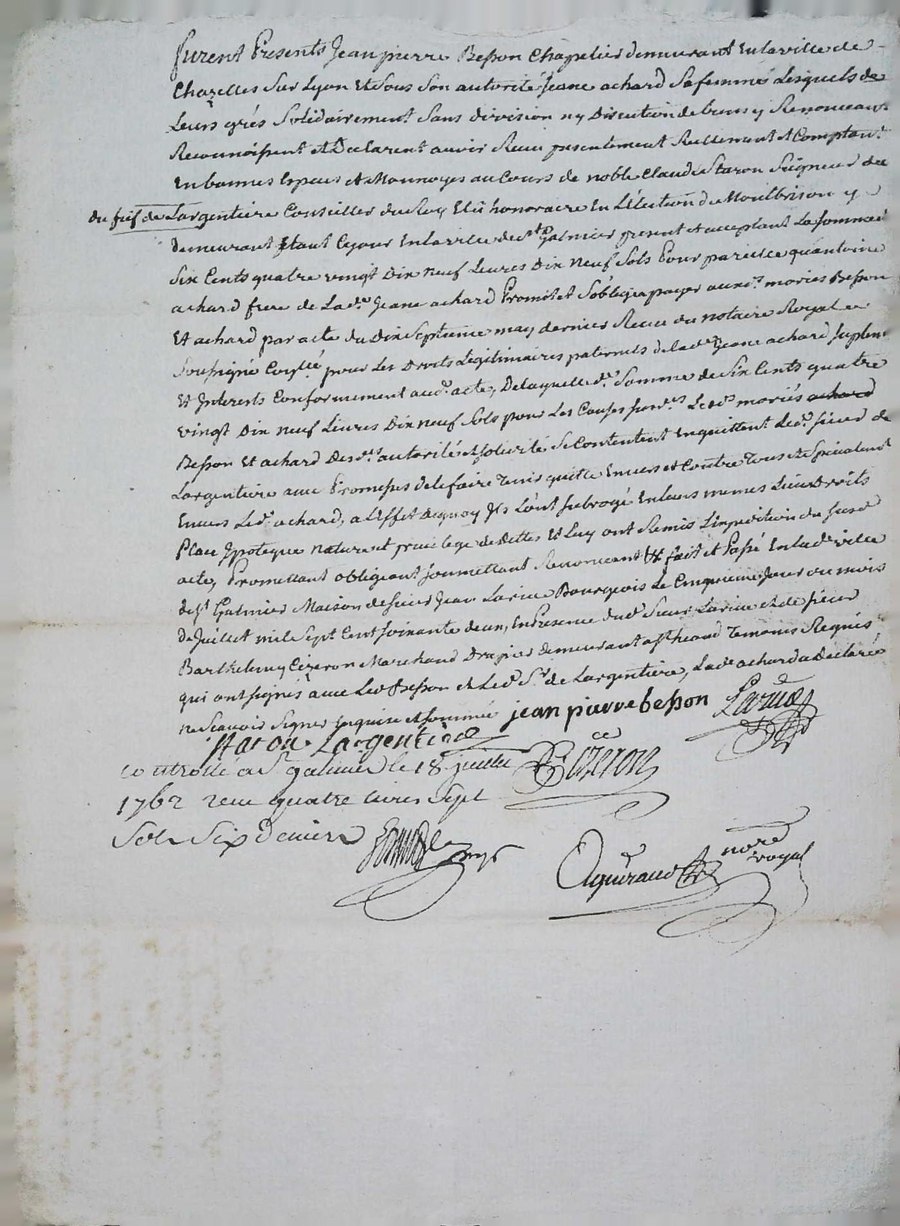 furent Presents Jean pierre Besson Chapelier demeurant En la ville de
Chazelles Sur Lyon Et Sous Son autorité Jeane achard Sa femme Lesquels de
Leurs grés Solidairement Sans division ny Discution de biens y Renonceant
Reconnoissent et Declarent avoir Receu presentement Reellement et Comptant
En bonnes Especes et Monnoyes au Cours de noble Claude Staron Seigneur de
du fief de Largentiere Conseiller du Roy Elû honoraire En l'élection de Montbrison y
demeurant Etant Ce jour En la ville de st galmier present et acceptant La Somme de
Six Cents quatre vingt Dix neuf Livres Dix neuf Sols Pour pareille qu'antoine
achard frere de La de Jeane achard Promit et S'obligea payer auxds mariés Besson
Et achard par acte du Dix Septieme may dernier Receu du notaire Royal
Soussigné pour Les Droits Legitimaires paternels de lad Jeane achard
Et Interets Conformement aud acte, De laquelle de Somme de Six Cents quatre
vingt Dix neuf Livres Dix neuf Sols pour Les Causes susds Lesds mariés achard
Besson Et achard Desds autorité et solidité Se Contentent En quittent Led sieur de
Largentiere avec Promesses de le faire Tenir quitte Envers et Contre Tous et specialement
Envers Led achard, a L'effet De quoy Ils L'ont subrogé En leurs mêmes Lieu Droits
Place Ypoteque nature et privilege de dettes Et Luy ont Remis L'expedition du susd
acte, Promettant obligeant soumettant Renonceant & fait et Passé En lade ville
de St Galmier Maison de sieur Jean Larue Bourgeois Le Cinquieme Jour du mois
de Juillet mil Sept Cent soixante deux, En Presence dud Sieur Larue et de sieur
Barthelemy Cizeron Marchand Drapier demeurant Temoins Requis
qui ont signés avec Led Besson et Led Sr de Largentiere, Lade achard a Declaré
ne Scavoir Signer Enquise et sommée jean pierre besson Larue
Staron Largentiere
controllé a St galmier le 18 juillet Cizeron
1762 receu quatre livres sept
Sols Six Deniers
nore royal